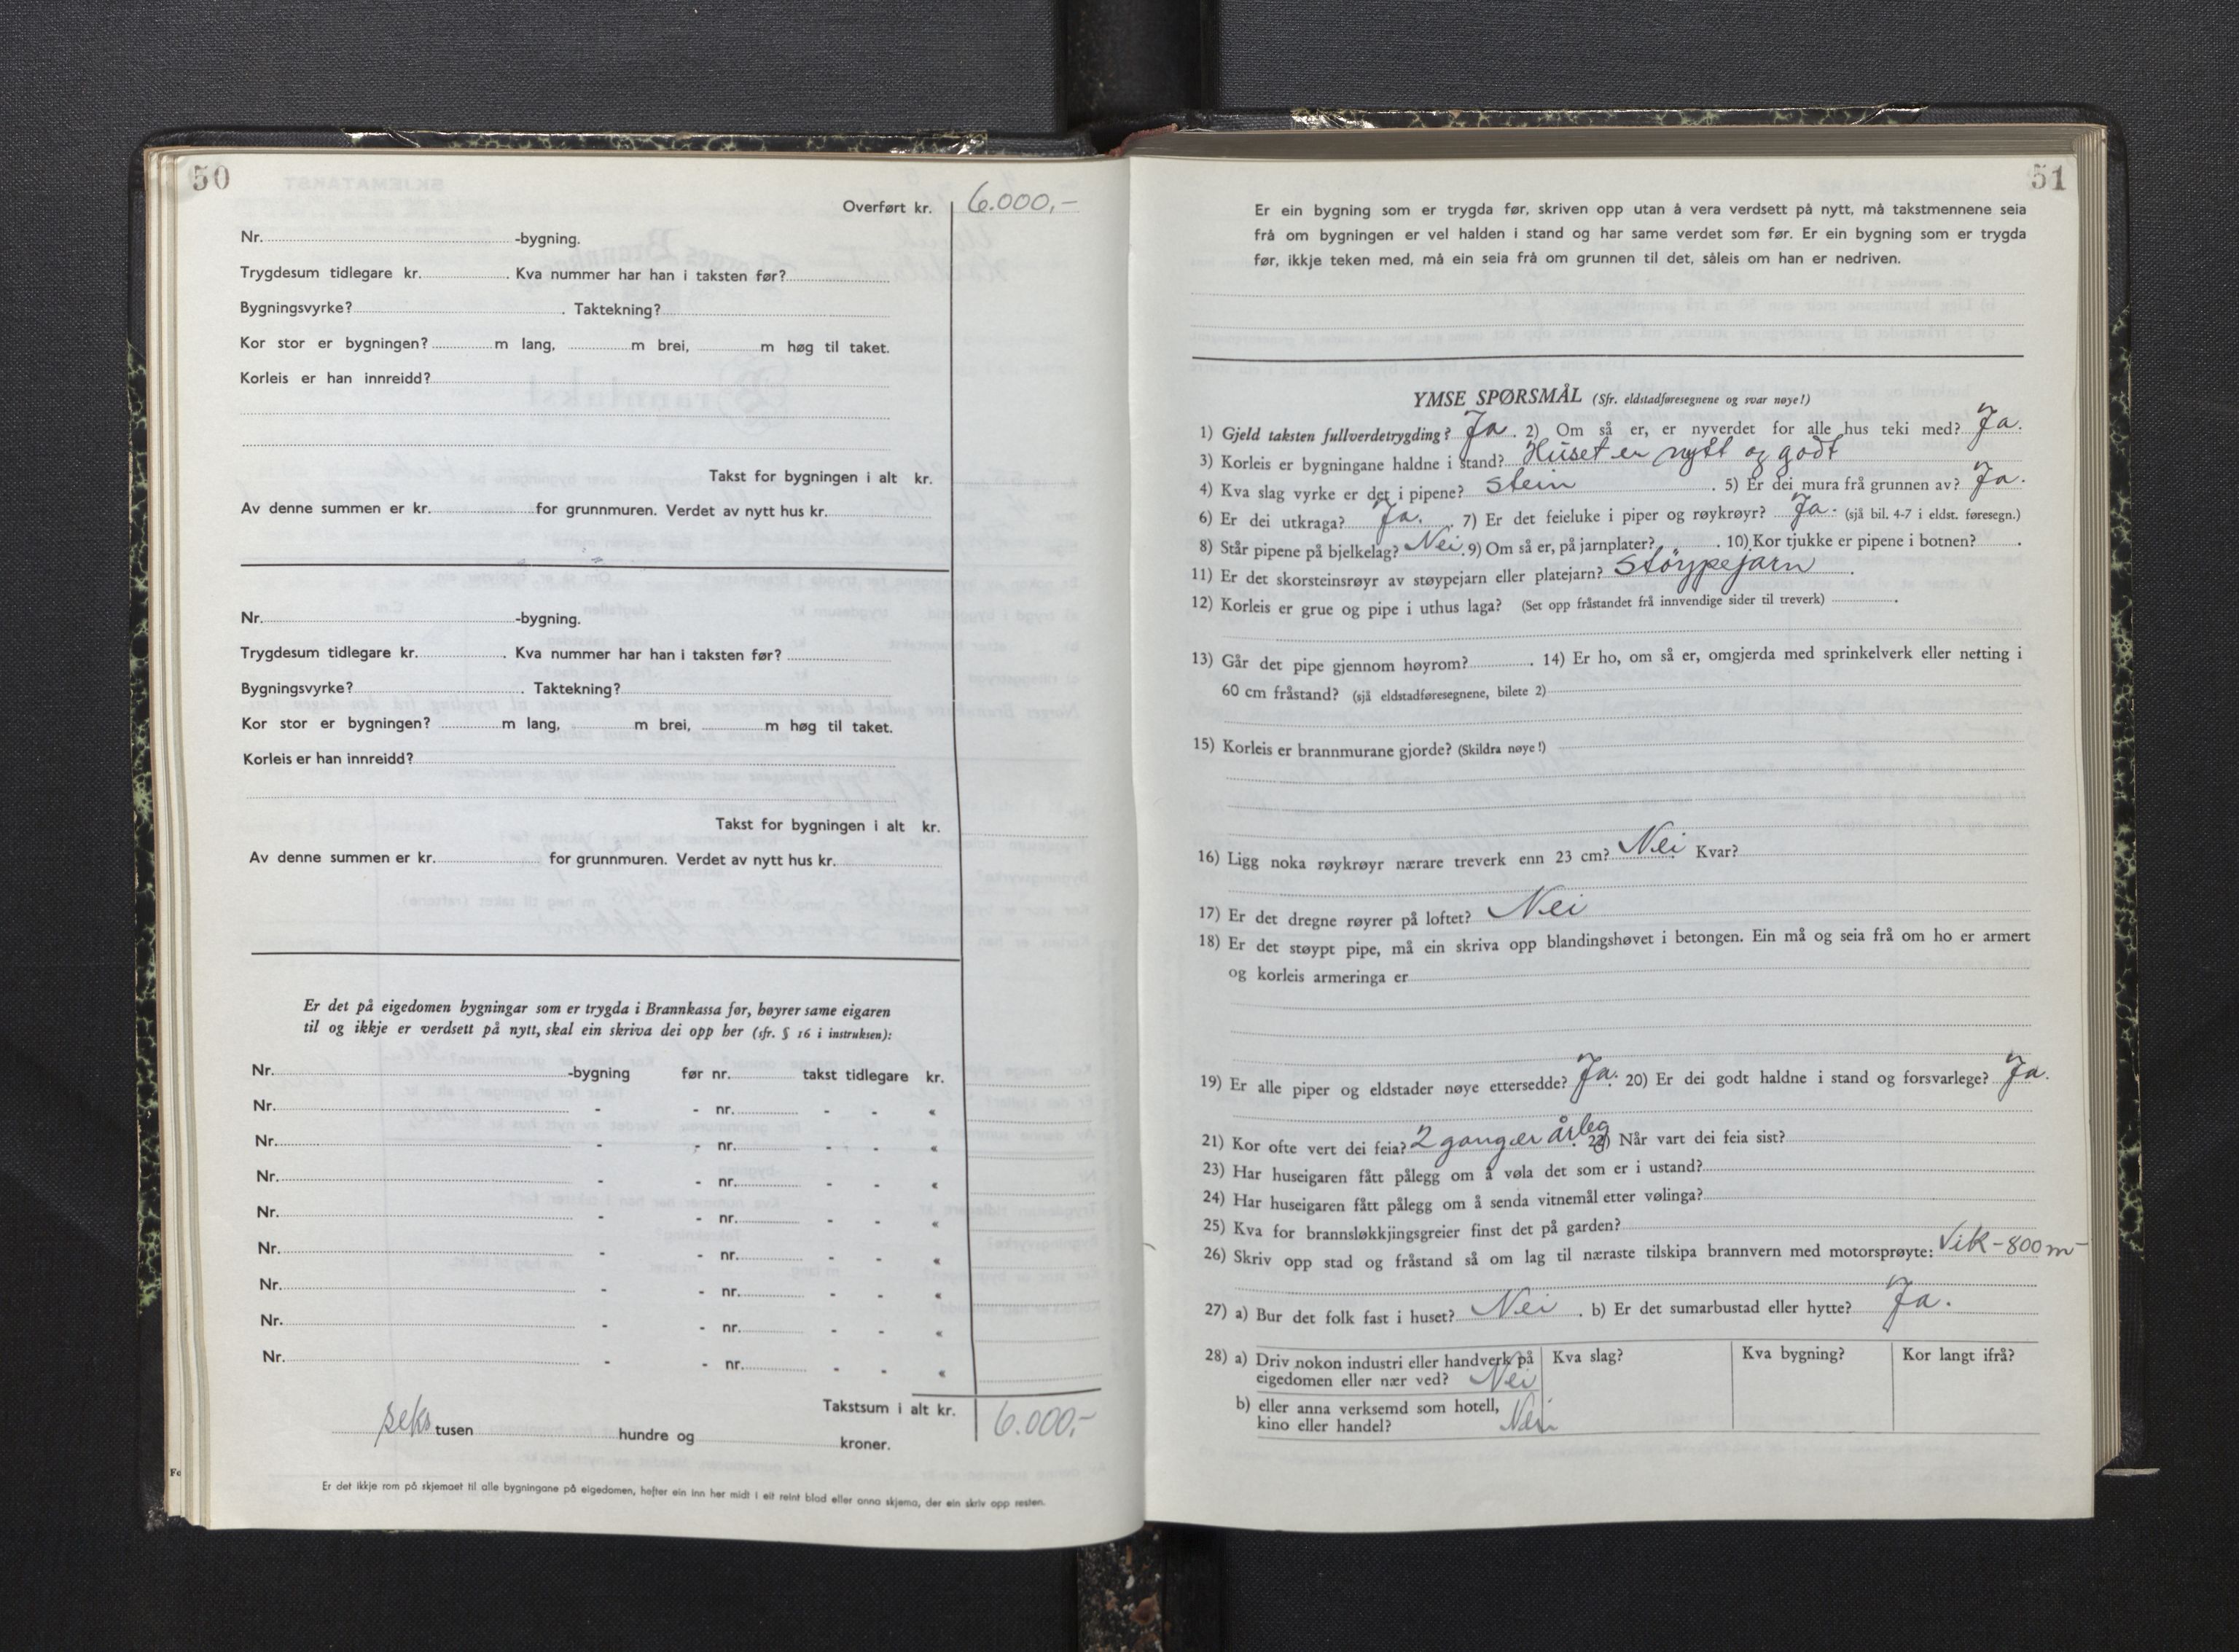 50
Overført kr. 6.000,-
Nr. -bygning.
Trygdesum tidlegare kr. . Kva nummer har han i taksten før?
Bygningsvyrke? . Taktekning?
Kor stor er bygningen? m lang, m brei, m høg til taket.
Korleis er han innreidd?
Takst for bygningen i alt kr.
Av denne summen er kr. for grunnmuren. Verdet av nytt hus kr.
Nr. -bygning.
Trygdesum tidlegare kr. . Kva nummer har han i taksten før?
Bygningsvyrke? . Taktekning?
Kor stor er bygningen? m lang, m brei, m høg til taket.
Korleis er han innreidd?
Takst for bygningen i alt kr.
Av denne summen er kr. for grunnmuren. Verdet av nytt hus kr.
Er det på eigedomen bygningar som er trygda i Brannkassa før, høyrer same eigaren
til og ikkje er verdsett på nytt, skal ein skriva dei opp her (sfr. § 16 i instruksen):
Nr. -bygning før nr. takst tidlegare kr.
Nr. - - nr. - - «
Nr. - - nr. - - «
Nr. - - nr. - - «
Nr. - - nr. - - «
Nr. - - nr. - - «
Nr. - - nr. - - «
Nr. - - nr. - - «
Nr. - - nr. - - «
Takstsum i alt kr. 6.000,-
seks tusen hundre og kroner.
Er det ikkje rom på skjemaet til alle bygningane på eigedomen, hefter ein inn her midt i eit reint blad eller anna skjema, der ein skriv opp resten.
51
Er ein bygning som er trygda før, skriven opp utan å vera verdsett på nytt, må takstmennene seia
frå om bygningen er vel halden i stand og har same verdet som før. Er ein bygning som er trygda
før, ikkje teken med, må ein seia frå om grunnen til det, såleis om han er nedriven.
YMSE SPØRSMÅL (Sfr. eldstadføresegnene og svar nøye!)
1) Gjeld taksten fullverdetrygding? Ja. 2) Om så er, er nyverdet for alle hus teki med? Ja.
3) Korleis er bygningane haldne i stand? Huset er nytt og godt
4) Kva slag vyrke er det i pipene? stein . 5) Er dei mura frå grunnen av? Ja.
6) Er dei utkraga? Ja. . 7) Er det feieluke i piper og røykrøyr? Ja. (sjå bil. 4-7 i eldst. føresegn.)
8) Står pipene på bjelkelag? Nei. 9) Om så er, på jarnplater? " . 10) Kor tjukke er pipene i botnen? .
11) Er det skorsteinsrøyr av støypejarn eller platejarn? støypejarn .
12) Korleis er grue og pipe i uthus laga? (Set opp fråstandet frå innvendige sider til treverk) .
13) Går det pipe gjennom høyrom? . 14) Er ho, om så er, omgjerda med sprinkelverk eller netting i
60 cm fråstand? (sjå eldstadføresegnene, bilete 2)
15) Korleis er brannmurane gjorde? (Skildra nøye!)
16) Ligg noka røykrøyr nærare treverk enn 23 cm? Nei Kvar?
17) Er det dregne røyrer på loftet? Nei
18) Er det støypt pipe, må ein skriva opp blandingshøvet i betongen. Ein må og seia frå om ho er armert
og korleis armeringa er
19) Er alle piper og eldstader nøye ettersedde? Ja. 20) Er dei godt haldne i stand og forsvarlege? Ja.
21) Kor ofte vert dei feia? 2 ganger årleg. 22) Når vart dei feia sist?
23) Har huseigaren fått pålegg om å vøla det som er i ustand?
24) Har huseigaren fått pålegg om å senda vitnemål etter vølinga?
25) Kva for brannsløkkjingsgreier finst det på garden?
26) Skriv opp stad og fråstand så om lag til næraste tilskipa brannvern med motorsprøyte: Vik - 800 m -
27) a) Bur det folk fast i huset? Nei . b) Er det sumarbustad eller hytte? Ja.
28) a) Driv nokon industri eller handverk på Kva slag? Kva bygning? Kor langt ifrå?
eigedomen eller nær ved? Nei
b) eller anna verksemd som hotell,
kino eller handel? Nei